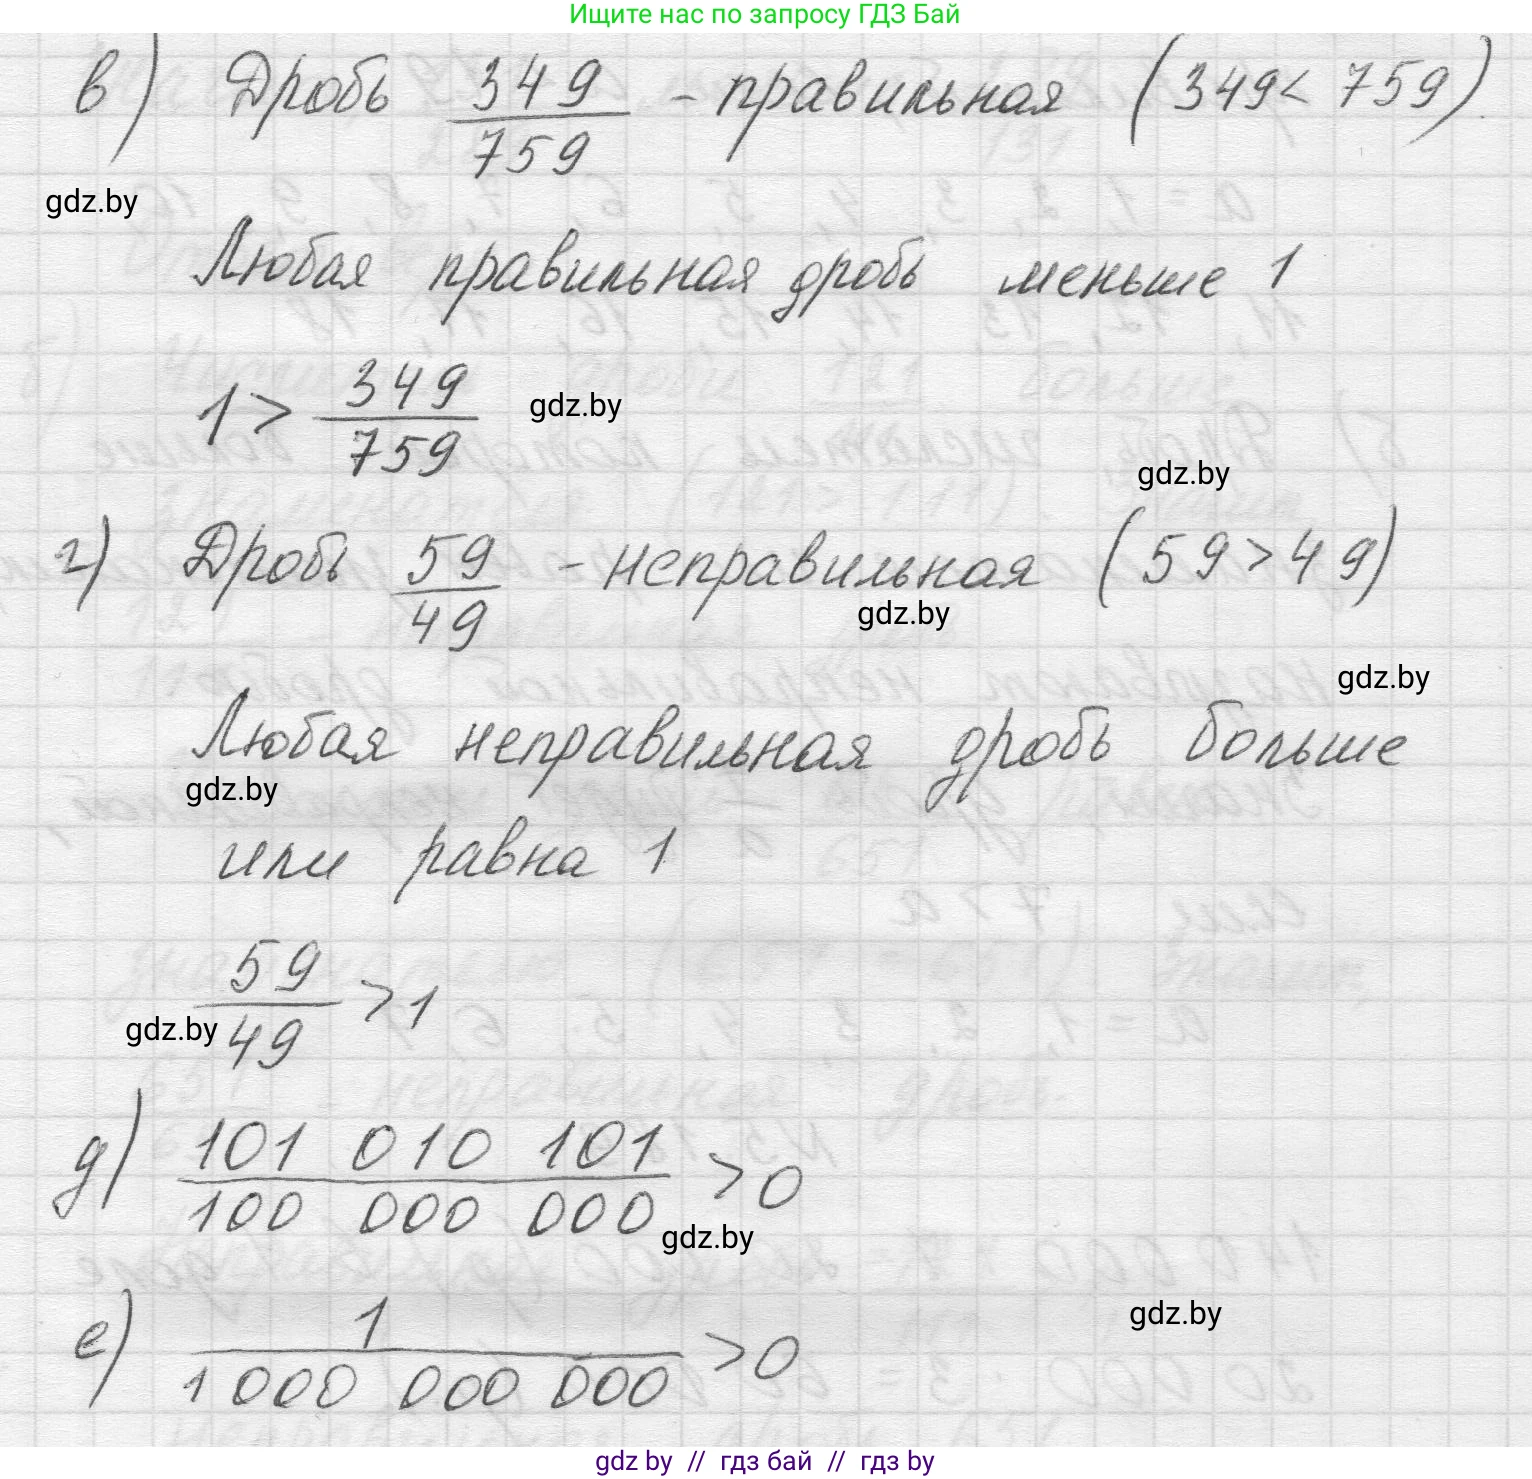 Ищите нас по запросу ГДЗ Бай
в) Дробь 349/759 - правильная (349 < 759).
gdz.by
Любая правильная дробь меньше 1
1 > 349/759
gdz.by
gdz.by
г) Дробь 59/49 - неправильная (59 > 49)
gdz.by
gdz.by
Любая неправильная дробь больше
gdz.by
или равна 1
59/49 > 1
gdz.by
д) 101 010 101/100 000 000 > 0
gdz.by
е) 1/1 000 000 000 > 0
gdz.by
gdz by // гдз бай // гдз by